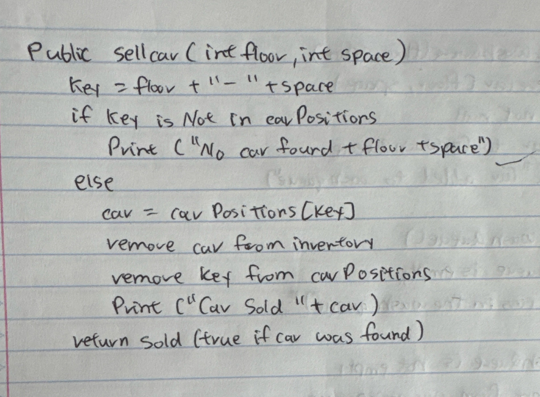 Public sellcar (int floor, int space)
Key = floor + "-" + space
if Key is Not in carPositions
Print ("No car found + floor + space")
else
car = carPositions[Key]
remove car from inventory
remove key from carPositions
Print ("Car Sold " + car)
return sold (true if car was found)